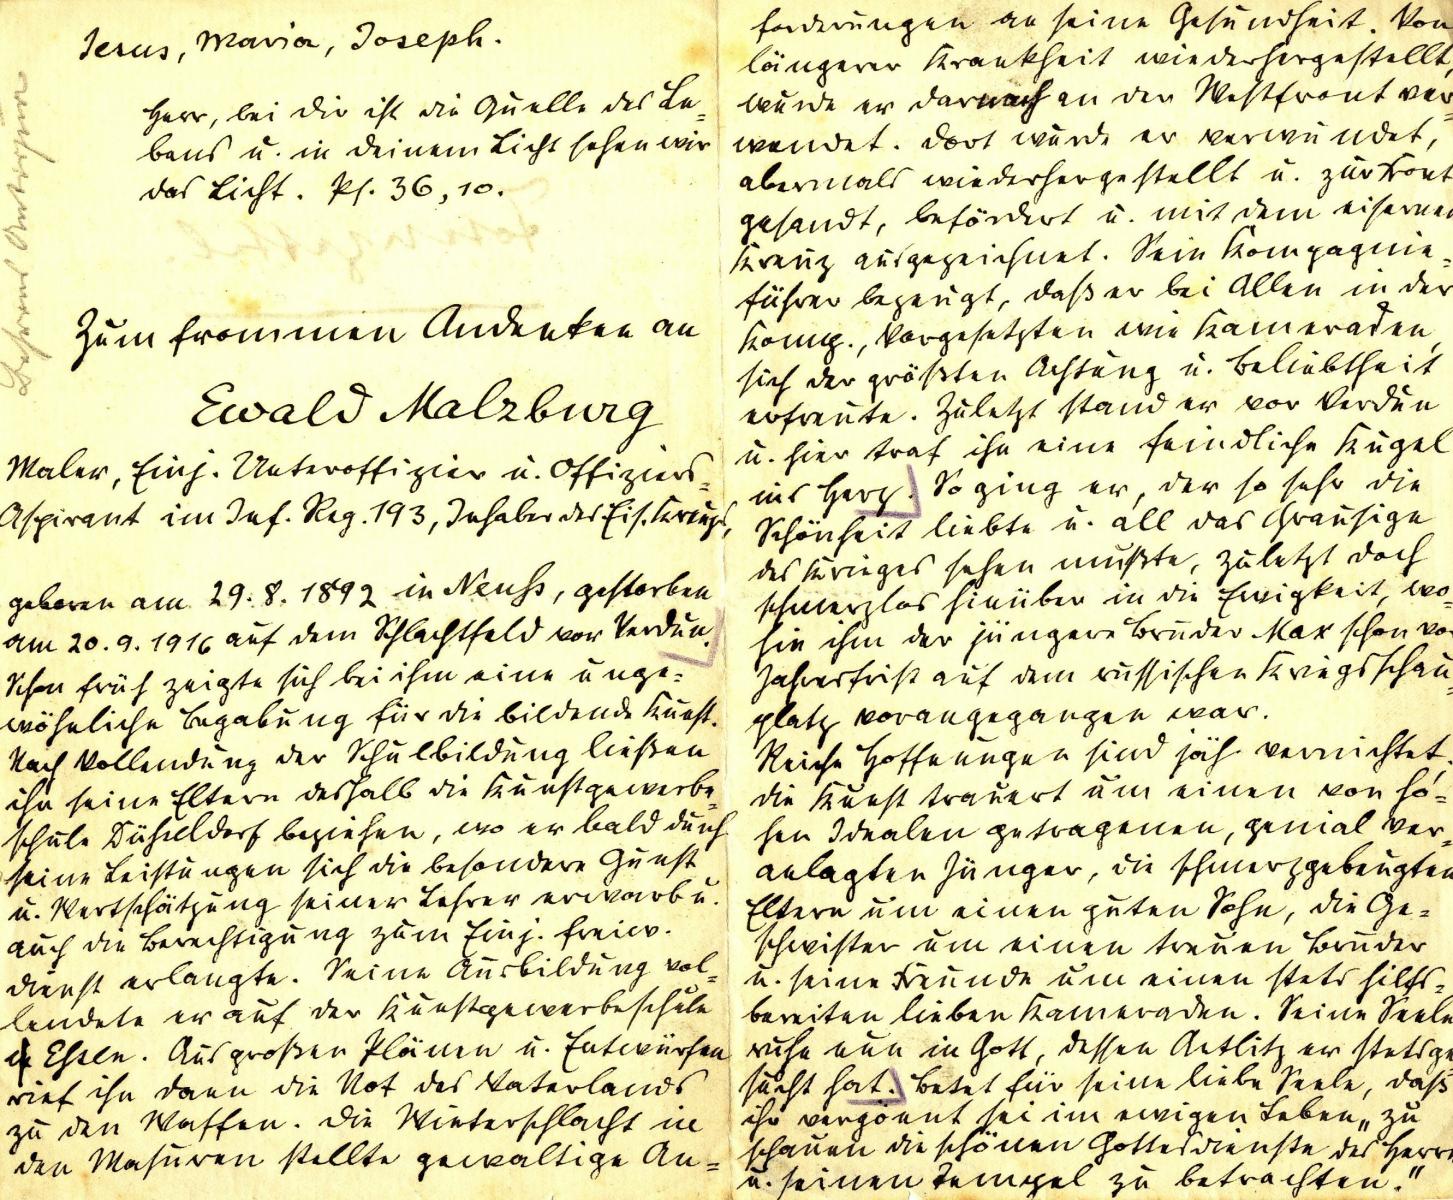 Jesus, Maria, Joseph.
Herr, bei dir ist die Quelle des Le=
bens u. in deinem Licht sehen wir
das Licht. Ps. 36, 10.
Zum frommen Andenken an
Ewald Malzburg
Maler, Einj. Unteroffizier u. Offiziers=
Aspirant im Inf. Reg. 193, Inhaber des Eis. Kreuzes,
geboren am 29. 8. 1892 in Neuss, gestorben
am 20. 9. 1916 auf dem Schlachtfeld vor Verdun.
Schon früh zeigte sich bei ihm eine unge=
wöhnliche Begabung für die bildende Kunst.
Nach Vollendung der Schulbildung ließen
ihn seine Eltern deshalb die Kunstgewerbe=
schule Düsseldorf beziehen, wo er bald durch
seine Leistungen sich die besondere Gunst
u. Wertschätzung seiner Lehrer erwarb u.
auch die Berechtigung zum Einj. freiw.
dienst erlangte. Seine Ausbildung vol=
lendete er auf der Kunstgewerbeschule
in Essen. Aus großen Plänen u. Entwürfen
rief ihn dann die Not des Vaterlands
zu den Waffen. Die Winterschlacht in
den Masuren stellte gewaltige An=
forderungen an seine Gesundheit. Von
längerer Krankheit wiederhergestellt,
wurde er darnach an der Westfront ver=
wendet. Dort wurde er verwundet,
abermals wiederhergestellt u. zur Front
gesandt, befördert u. mit dem eisernen
Kreuz ausgezeichnet. Sein Kompagnie=
führer bezeugt, daß er bei Allen in der
Komp., Vorgesetzten wie Kameraden,
sich der größten Achtung u. Beliebtheit
erfreute. Zuletzt stand er vor Verdun
u. hier traf ihn eine feindliche Kugel
ins Herz. So ging er, der so sehr die
Schönheit liebte u. all das Grausige
des Krieges sehen mußte, zuletzt doch
schmerzlos hinüber in die Ewigkeit, wo=
hin ihm der jüngere Bruder Max schon vor
Jahresfrist auf dem russischen Kriegsschau=
platz vorangegangen war.
Reiche Hoffnungen sind jäh vernichtet,
die Kunst trauert um einen von ho=
hen Idealen getragenen, genial ver=
anlagten Jünger, die schmerzgebeugten
Eltern um einen guten Sohn, die Ge=
schwister um einen treuen Bruder
u. seine Freunde um einen stets hilfs=
bereiten lieben Kameraden. Seine Seele
ruhe nun in Gott, dessen Antlitz er stets ge
sucht hat. Betet für seine liebe Seele, daß
ihr vergönnt sei im ewigen Leben „zu
schauen die schönen Gottesdienste des Herrn
u. seinen Tempel zu betrachten."